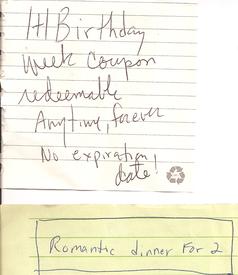 1HBirthday
week coupon
redeemable
Anytime, forever
No expiration
date!
Romantic dinner For 2